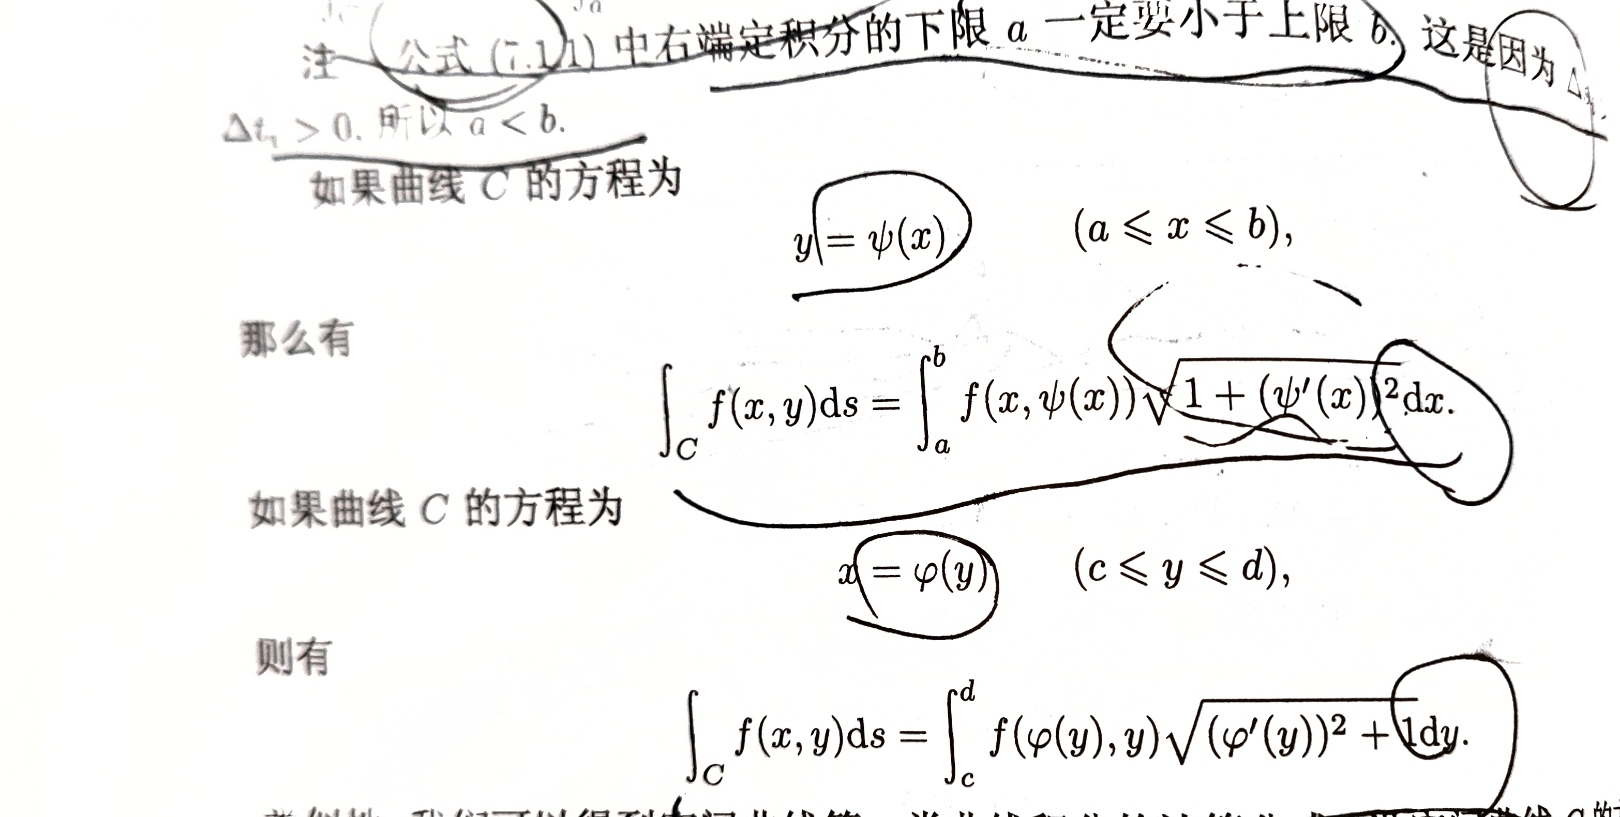 注 公式 (7.1.1) 中右端定积分的下限 a 一定要小于上限 b. 这是因为 Δ
Δt_i > 0. 所以 a < b.
如果曲线 C 的方程为
y = ψ(x) (a ⩽ x ⩽ b),
那么有
∫_C f(x, y)ds = ∫_a^b f(x, ψ(x))√(1 + (ψ′(x))²)dx.
如果曲线 C 的方程为
x = φ(y) (c ⩽ y ⩽ d),
则有
∫_C f(x, y)ds = ∫_c^d f(φ(y), y)√((φ′(y))² + 1)dy.